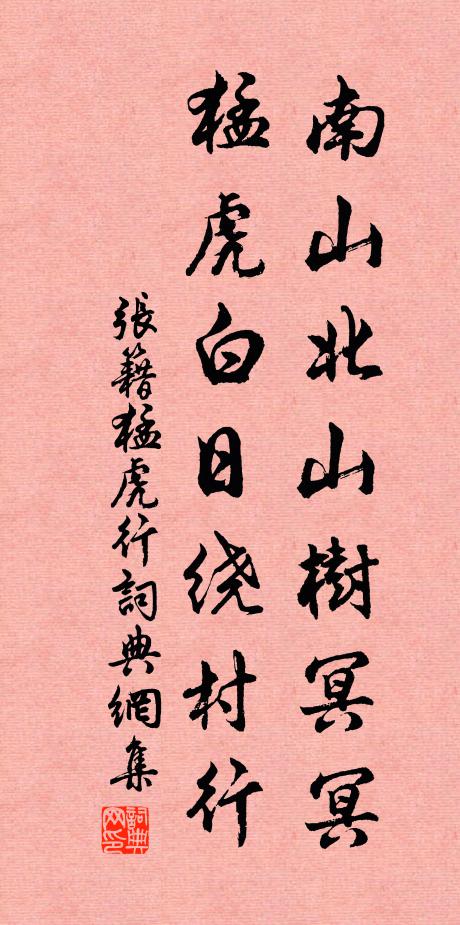 南山北山樹冥冥
猛虎白日绕村行
張籍猛虎行詞典網集
詞典网印